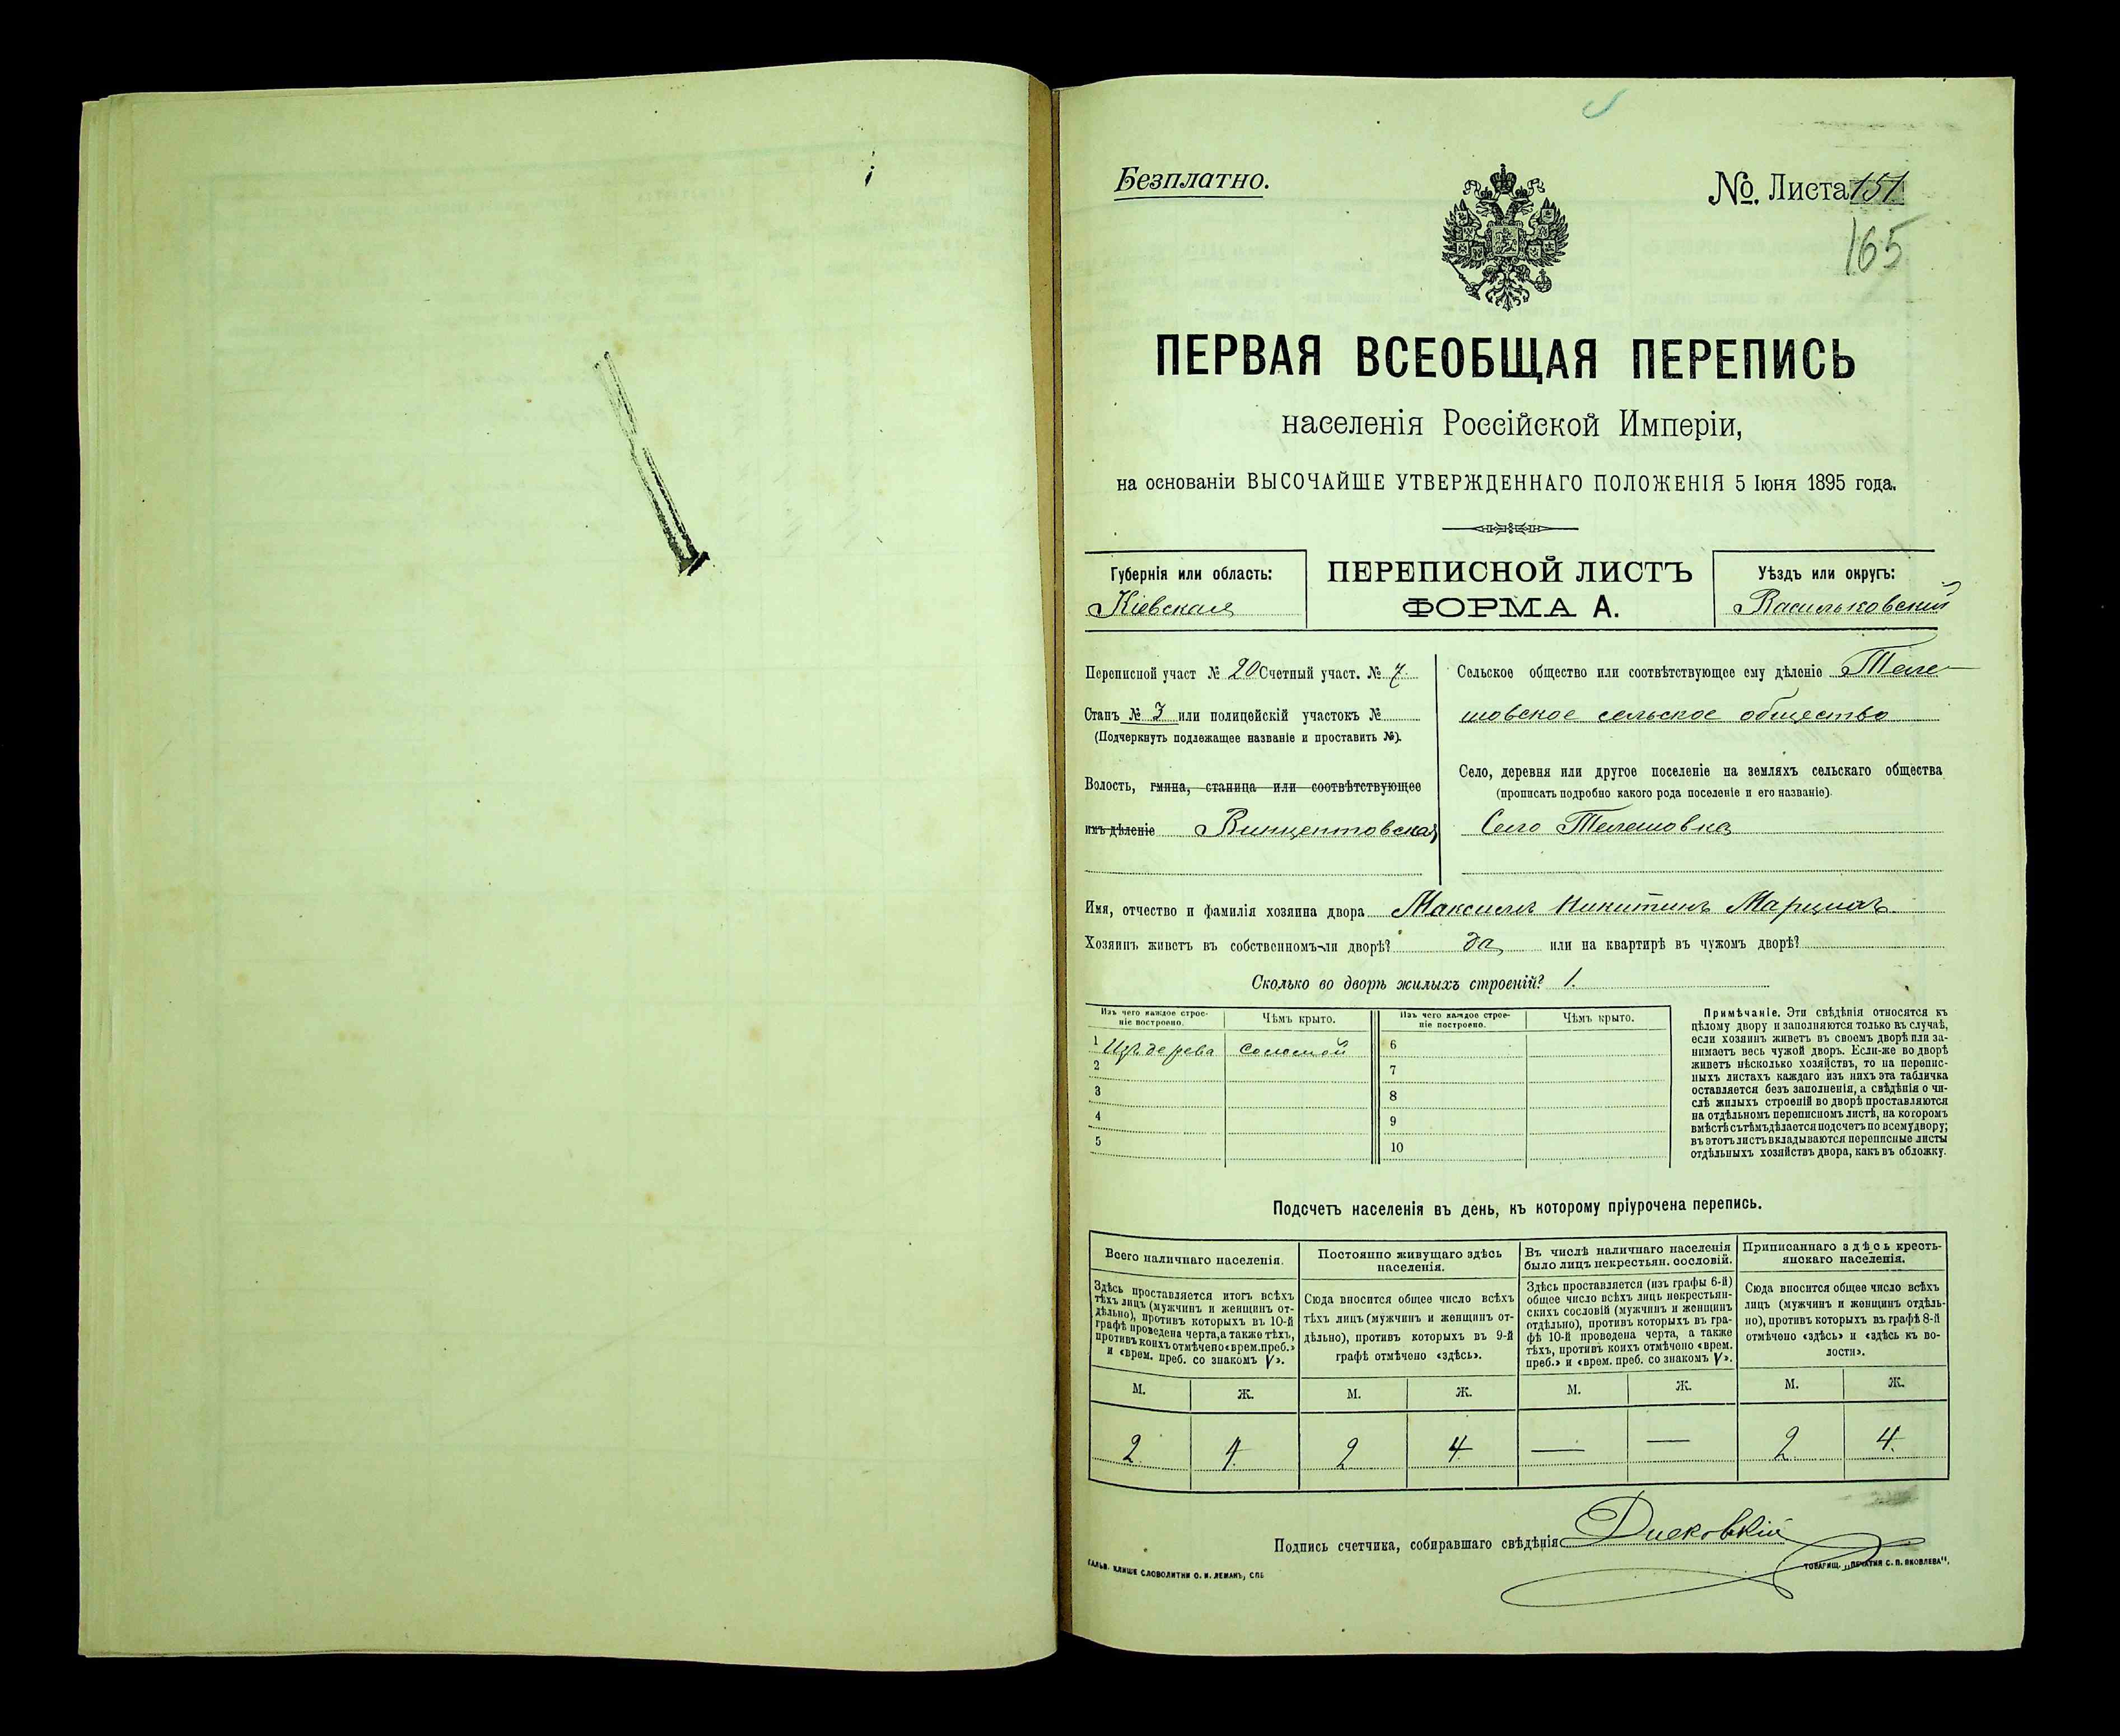 Безплатно.
№ Листа 151
165
ПЕРВАЯ ВСЕОБЩАЯ ПЕРЕПИСЬ
населенія Россійской Имперіи,
на основаніи ВЫСОЧАЙШЕ УТВЕРЖДЕННАГО ПОЛОЖЕНІЯ 5 Іюня 1895 года.
Губернія или область:
Кіевская
ПЕРЕПИСНОЙ ЛИСТЪ
ФОРМА А.
Уѣздъ или округъ:
Васильковскій
Переписной участ № 20 Счетный участ. № 7.
Станъ № 3 или полицейскій участокъ №
(Подчеркнуть подлежащее названіе и проставить №).
Волость, гмина, станица или соотвѣтствующее
имъ дѣленіе Винцентовская
Сельское общество или соотвѣтствующее ему дѣленіе Теле-
шовское сельское общество
Село, деревня или другое поселеніе на земляхъ сельскаго общества
(прописать подробно какого рода поселеніе и его названіе).
Село Телешовка
Имя, отчество и фамилія хозяина двора Максимъ Никитинъ
Хозяинъ живетъ въ собственномъ-ли дворѣ? да или на квартирѣ въ чужомъ дворѣ?
Сколько во дворѣ жилыхъ строеній? 1.
Изъ чего каждое строе-
ніе построено.
Чѣмъ крыто.
Изъ чего каждое строе-
ніе построено.
Чѣмъ крыто.
1 Изъ дерева соломой
2
3
4
5
6
7
8
9
10
Примѣчаніе. Эти свѣдѣнія относятся къ
цѣлому двору и заполняются только въ случаѣ,
если хозяинъ живетъ въ своемъ дворѣ или за-
нимаетъ весь чужой дворъ. Если-же во дворѣ
живетъ нѣсколько хозяйствъ, то на перепис-
ныхъ листахъ каждаго изъ нихъ эта табличка
оставляется безъ заполненія, а свѣдѣнія о чи-
слѣ жилыхъ строеній во дворѣ проставляются
на отдѣльномъ переписномъ листѣ, на которомъ
вмѣстѣ съ тѣмъ дѣлается подсчетъ по всему двору;
въ этотъ листъ вкладываются переписные листы
отдѣльныхъ хозяйствъ двора, какъ въ обложку.
Подсчетъ населенія въ день, къ которому пріурочена перепись.
Всего наличнаго населенія.
Здѣсь проставляется итогъ всѣхъ
тѣхъ лицъ (мужчинъ и женщинъ от-
дѣльно), противъ которыхъ въ 10-й
графѣ проведена черта, а также тѣхъ,
противъ коихъ отмѣчено «врем. преб.»
и «врем. преб. со знакомъ V».
Постоянно живущаго здѣсь
населенія.
Сюда вносится общее число всѣхъ
тѣхъ лицъ (мужчинъ и женщинъ от-
дѣльно), противъ которыхъ въ 9-й
графѣ отмѣчено «здѣсь».
Въ числѣ наличнаго населенія
было лицъ некрестьян. сословій.
Здѣсь проставляется (изъ графы 6-й)
общее число всѣхъ лицъ некрестьян-
скихъ сословій (мужчинъ и женщинъ
отдѣльно), противъ которыхъ въ гра-
фѣ 10-й проведена черта, а также
тѣхъ, противъ коихъ отмѣчено «врем.
преб.» и «врем. преб. со знакомъ V».
Приписаннаго здѣсь кресть-
янскаго населенія.
Сюда вносится общее число всѣхъ
лицъ (мужчинъ и женщинъ отдѣль-
но), противъ которыхъ въ графѣ 8-й
отмѣчено «здѣсь» и «здѣсь къ во-
лости».
М. Ж. М. Ж. М. Ж. М. Ж.
2 4 2 4 — — 2 4
Подпись счетчика, собиравшаго свѣдѣнія
ГАЛЬВ. КЛИШЕ СЛОВОЛИТНИ О. И. ЛЕМАНЪ, СПБ
ТОВАРИЩ. „ПЕЧАТНЯ С. П. ЯКОВЛЕВА".